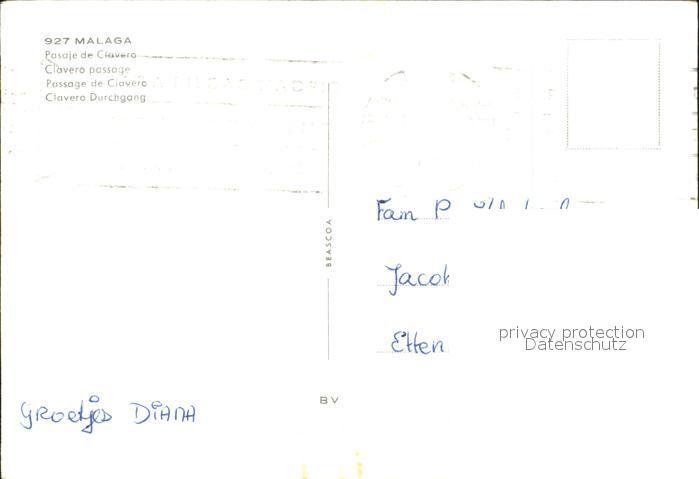 927 MALAGA
Pasaje de Clavero
Clavero passage
Passage de Clavero
Clavero Durchgang
BEASCOA
Fam P
Jacob
Etten
privacy protection
Datenschutz
BV
Groetjes DIANA